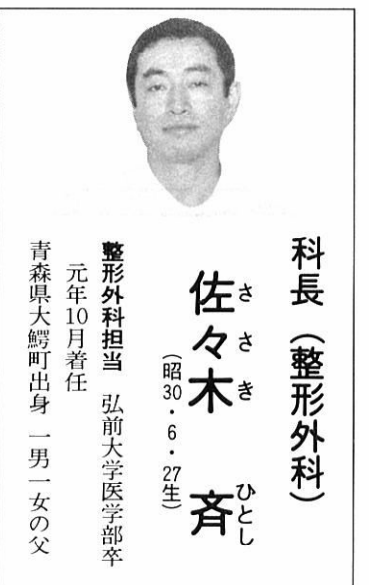 科長（整形外科）
佐々木　斉
ささき　ひとし
（昭30・6・27生）
整形外科担当　弘前大学医学部卒
元年10月着任
青森県大鰐町出身　一男一女の父